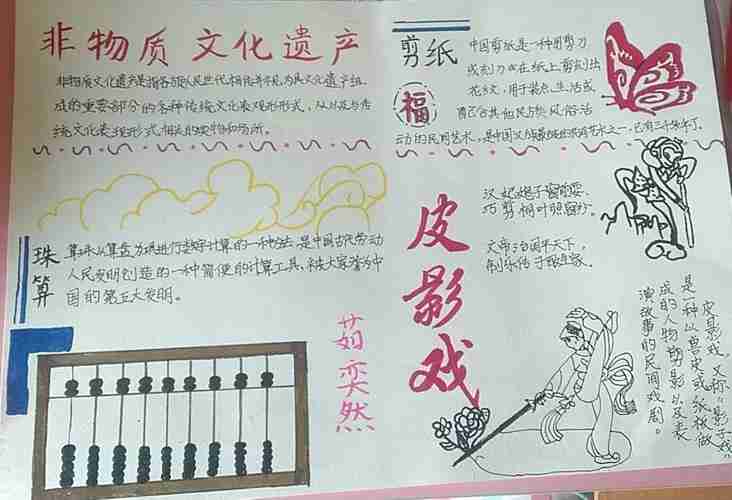 非物质文化遗产
非物质文化遗产是指各族人民世代相传并视为其文化遗产组
成的重要部分的各种传统文化表现形式,以及与传
统文化表现形式相关的实物和场所。
珠算
算珠从算盘为工具进行数字计算的一种方法,是中国古代劳动
人民发明创造的一种简便的计算工具,被大家誉为中
国的第五大发明。
茹奕然
剪纸
福
中国剪纸是一种用剪刀
或刻刀在纸上剪刻
花纹,用于装点生活或
配合其他民族风俗活
动的民间艺术,是中国
皮影戏
汉妃抱子窗前耍,
巧剪桐叶照窗纱。
文帝治国平天下,
制乐传子
皮影戏,又称“影子戏
是一种以兽皮或纸板做
成的人物剪影以及表
演故事的民间戏剧。